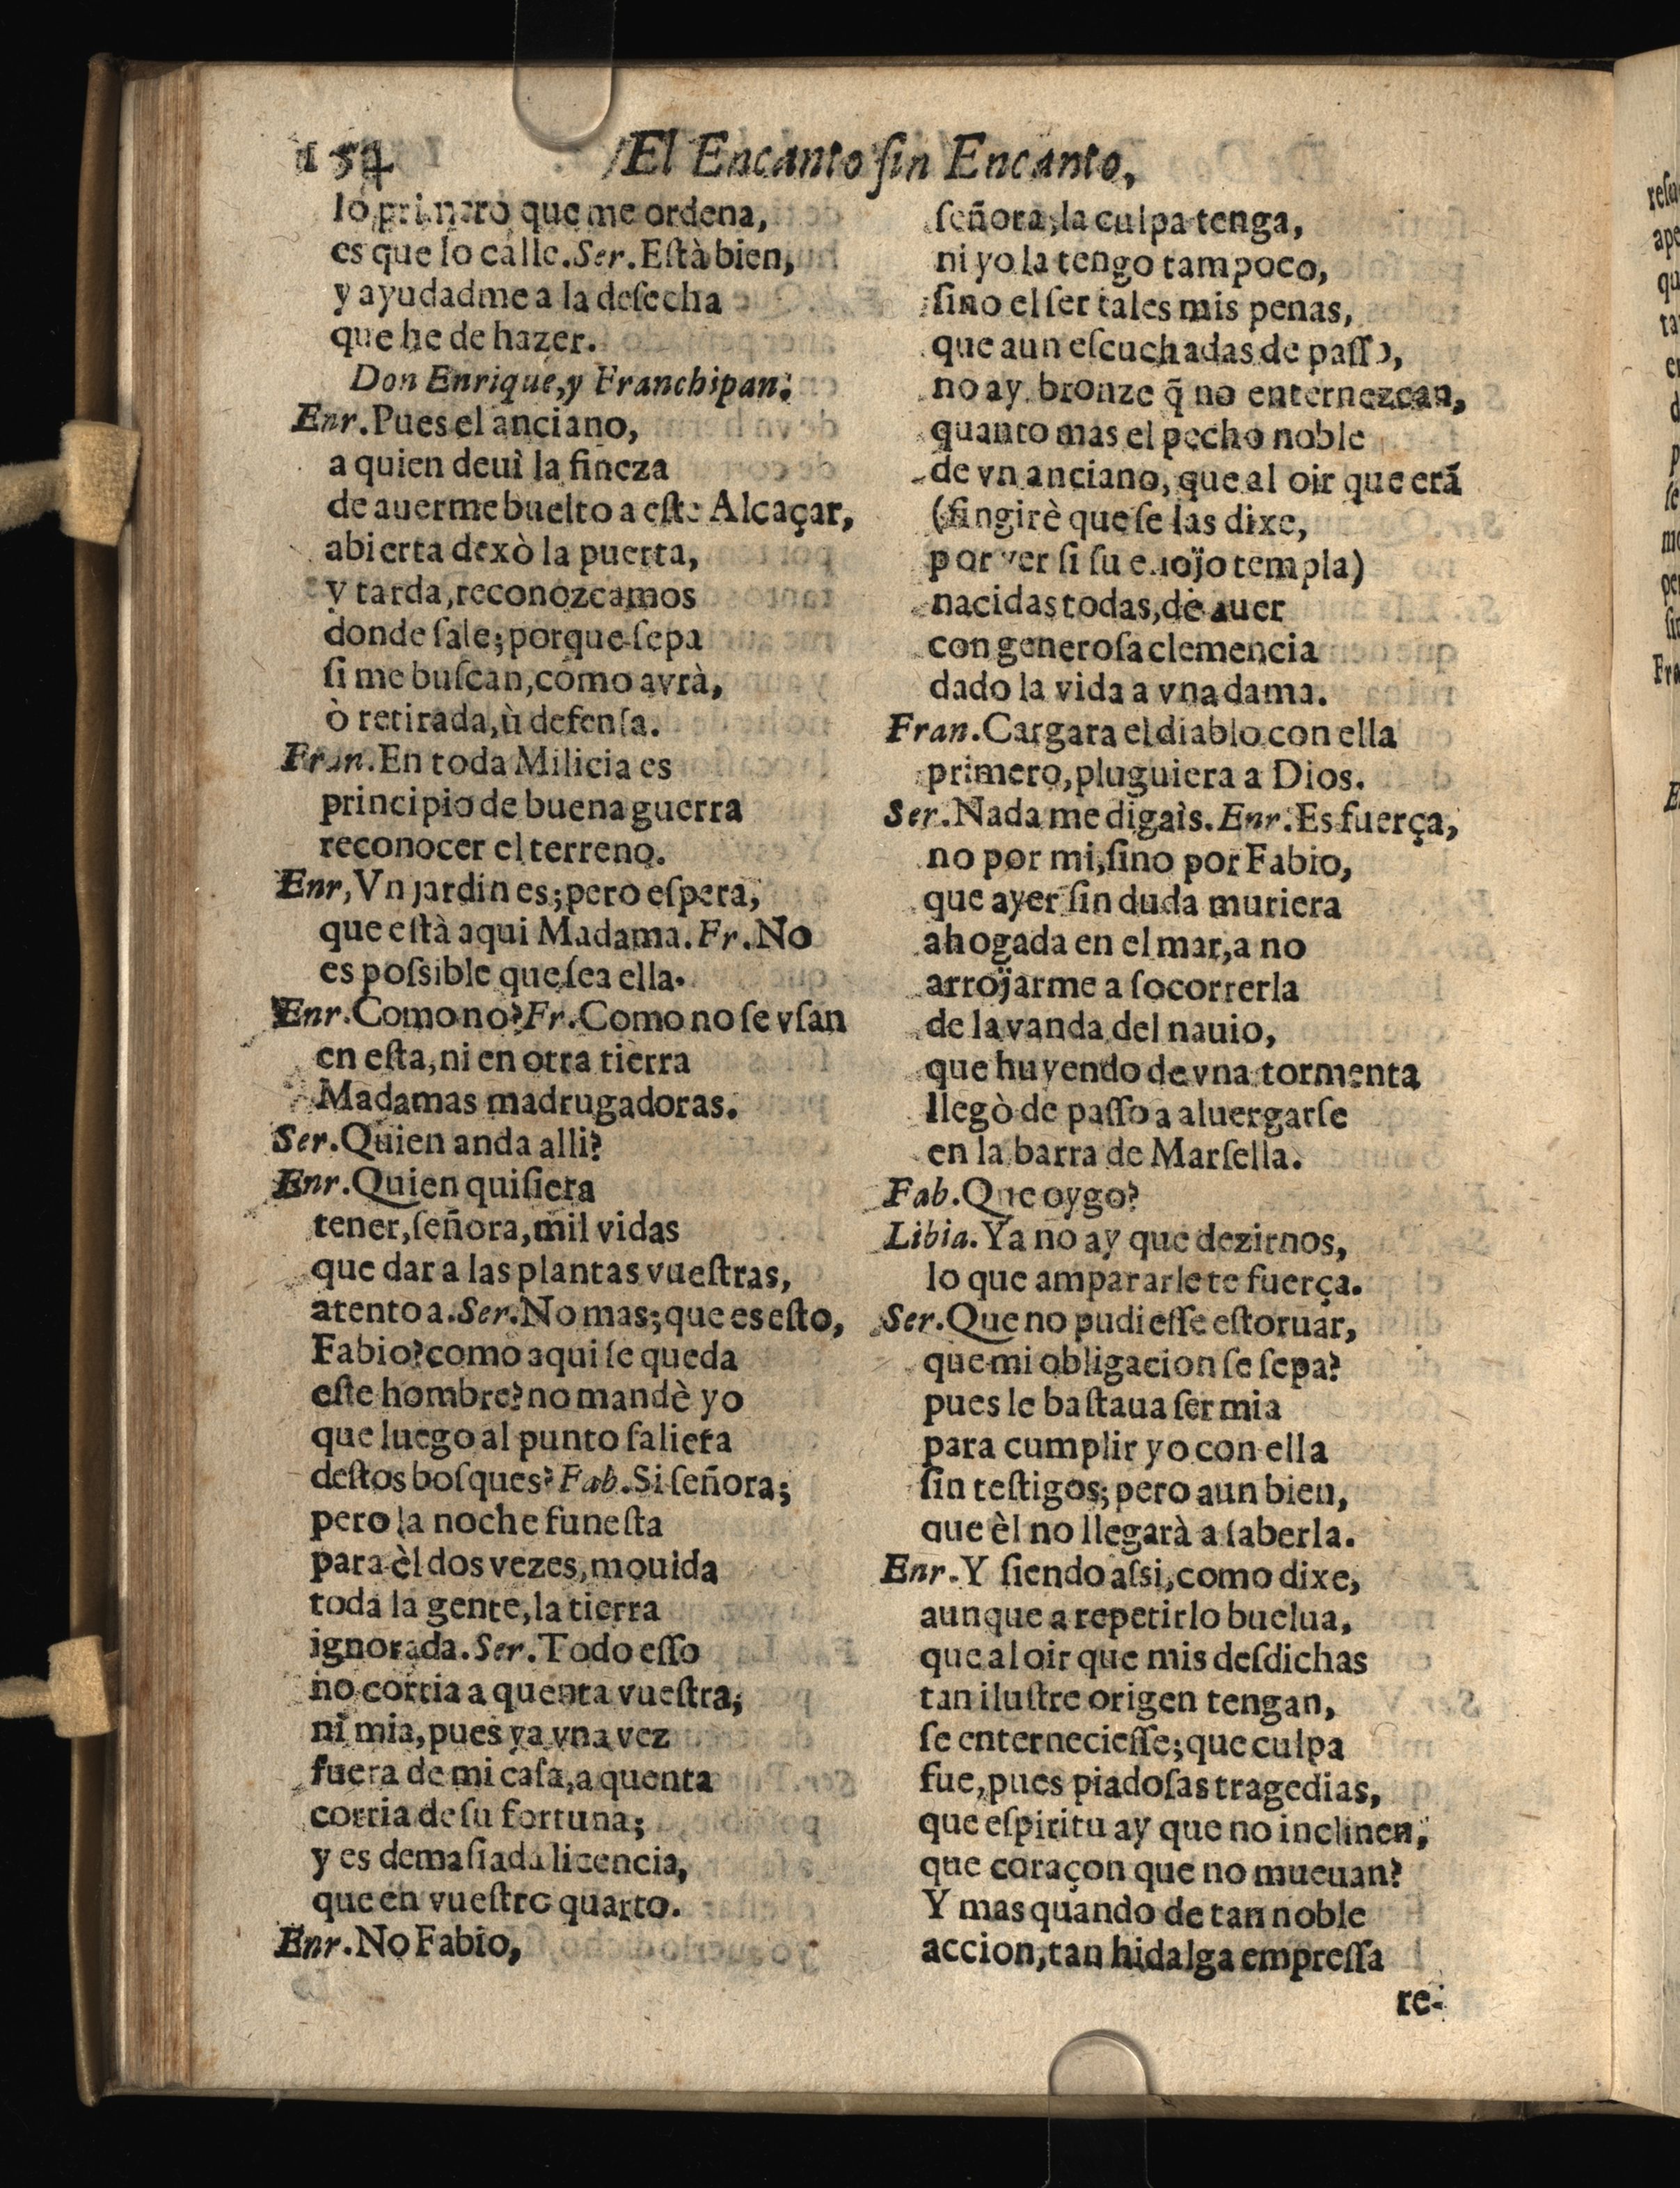 154 El Encanto ſin Encanto,
lo primero que me ordena,
es que lo calle. Ser. Eſtà bien,
y ayudadme a la deſecha
que he de hazer.
Don Enrique, y Franchipan.
Enr. Pues el anciano,
a quien deuì la fineza
de auerme buelto a eſte Alcaçar,
abierta dexò la puerta,
y tarda, reconozcamos
donde ſale; porque ſepa
ſi me buſcan, cómo avrà,
ò retirada, ù defenſa.
Fran. En toda Milicia es
principio de buena guerra
reconocer el terreno.
Enr, Vn jardin es; pero eſpera,
que eſtà aqui Madama. Fr. No
es poſsible que ſea ella.
Enr. Como no? Fr. Como no ſe vſan
en eſta, ni en otra tierra
Madamas madrugadoras.
Ser. Quien anda alli?
Enr. Quien quiſiera
tener, ſeñora, mil vidas
que dar a las plantas vueſtras,
atento a. Ser. No mas; que es eſto,
Fabio? como aqui ſe queda
eſte hombre? no mandè yo
que luego al punto ſaliera
deſtos boſques? Fab. Si ſeñora;
pero la noche funeſta
para èl dos vezes, mouida
toda la gente, la tierra
ignorada. Ser. Todo eſſo
no corria a quenta vueſtra,
ni mia, pues ya vna vez
fuera de mi caſa, a quenta
corria de ſu fortuna;
y es demaſiada licencia,
que en vueſtro quarto.
Enr. No Fabio,
ſeñora, la culpa tenga,
ni yo la tengo tampoco,
ſino el ſer tales mis penas,
que aun eſcuchadas de paſſo,
no ay bronze q̃ no enternezcan,
quanto mas el pecho noble
de vn anciano, que al oir que erã
(fingirè que ſe las dixe,
por ver ſi ſu enojo templa)
nacidas todas, de auer
con generoſa clemencia
dado la vida a vna dama.
Fran. Cargara el diablo con ella
primero, pluguiera a Dios.
Ser. Nada me digais. Enr. Es fuerça,
no por mi, ſino por Fabio,
que ayer ſin duda muriera
ahogada en el mar, a no
arrojarme a ſocorrerla
de la vanda del nauio,
que huyendo de vna tormenta
llegò de paſſo a aluergarſe
en la barra de Marſella.
Fab. Que oygo?
Libia. Ya no ay que dezirnos,
lo que ampararle te fuerça.
Ser. Que no pudieſſe eſtoruar,
que mi obligacion ſe ſepa?
pues le baſtaua ſer mia
para cumplir yo con ella
ſin teſtigos; pero aun bien,
que èl no llegarà a ſaberla.
Enr. Y ſiendo aſsi, como dixe,
aunque a repetirlo buelua,
que al oir que mis deſdichas
tan iluſtre origen tengan,
ſe enternecieſſe; que culpa
fue, pues piadoſas tragedias,
que eſpiritu ay que no inclinen,
que coraçon que no mueuan?
Y mas quando de tan noble
accion, tan hidalga empreſſa
re-